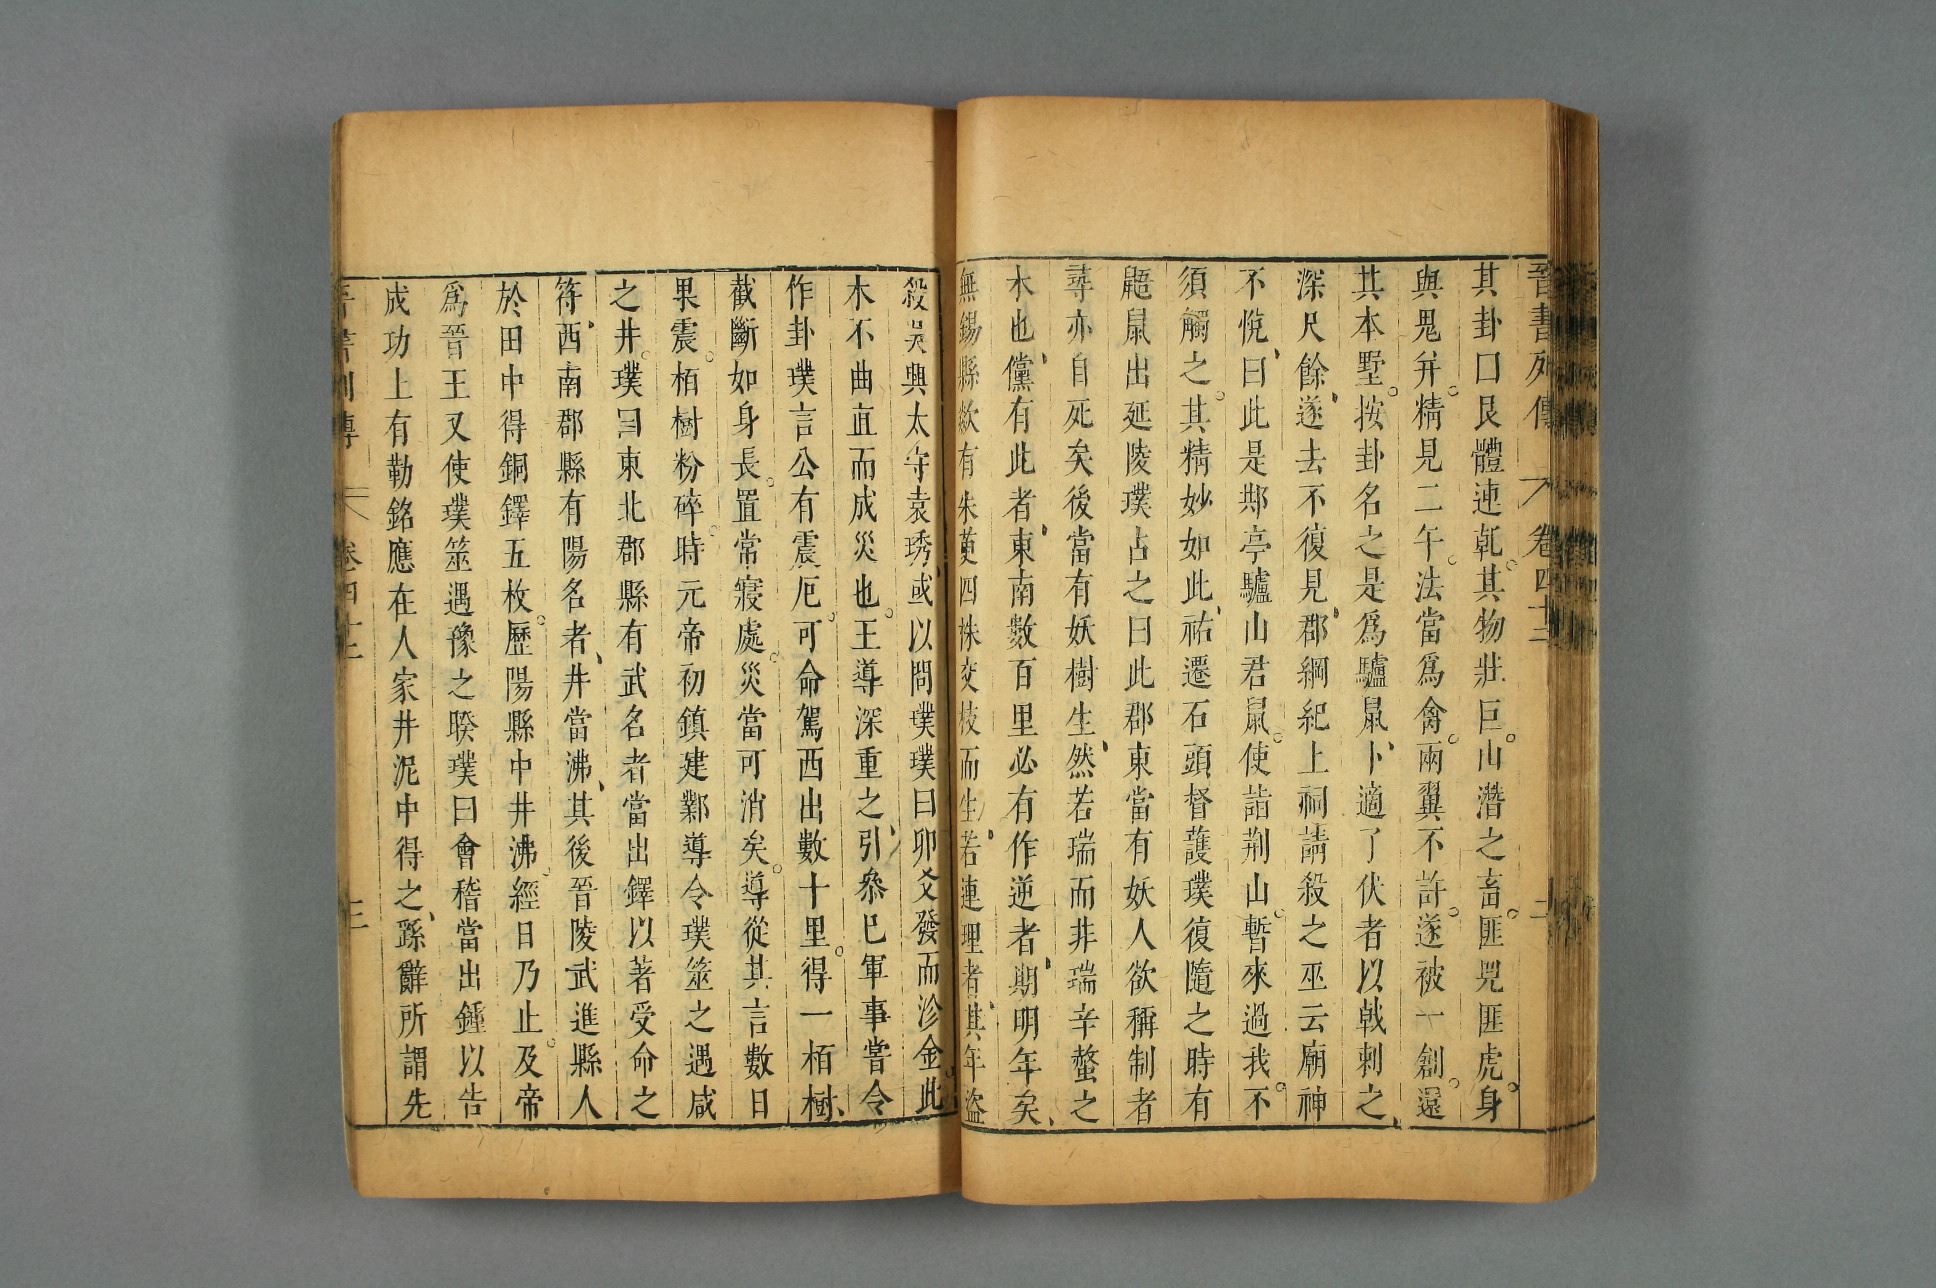 晉書列傳 卷四十二 二
其卦曰艮體連乾其物壯巨山潛之畜匪兕匪虎身
與鬼幷精見二午法當爲禽兩翼不許遂被一創還
其本墅按卦名之是爲驢鼠卜適了伏者以戟刺之
深尺餘遂去不復見郡綱紀上祠請殺之巫云廟神
不悅曰此是䢼亭驢山君鼠使詣荆山暫來過我不
須觸之其精妙如此祐遷石頭督護璞復隨之時有
鼯鼠出延陵璞占之曰此郡東當有妖人欲稱制者
尋亦自死矣後當有妖樹生然若瑞而非瑞辛螫之
木也儻有此者東南數百里必有作逆者期明年矣
無錫縣歘有朱茰四株交枝而生若連理者其年盜
殺吳興太守袁琇或以問璞璞曰卯爻發而沴金此
木不曲直而成災也王導深重之引參已軍事嘗令
作卦璞言公有震厄可命駕西出數十里得一栢樹
截斷如身長置常寢處災當可消矣導從其言數日
果震栢樹粉碎時元帝初鎮建鄴導令璞筮之遇咸
之井璞曰東北郡縣有武名者當出鐸以著受命之
符西南郡縣有陽名者井當沸其後晉陵武進縣人
於田中得銅鐸五枚歷陽縣中井沸經日乃止及帝
爲晉王又使璞筮遇豫之睽璞曰會稽當出鍾以告
成功上有勒銘應在人家井泥中得之繇辭所謂先
晉書列傳 卷四十二 三